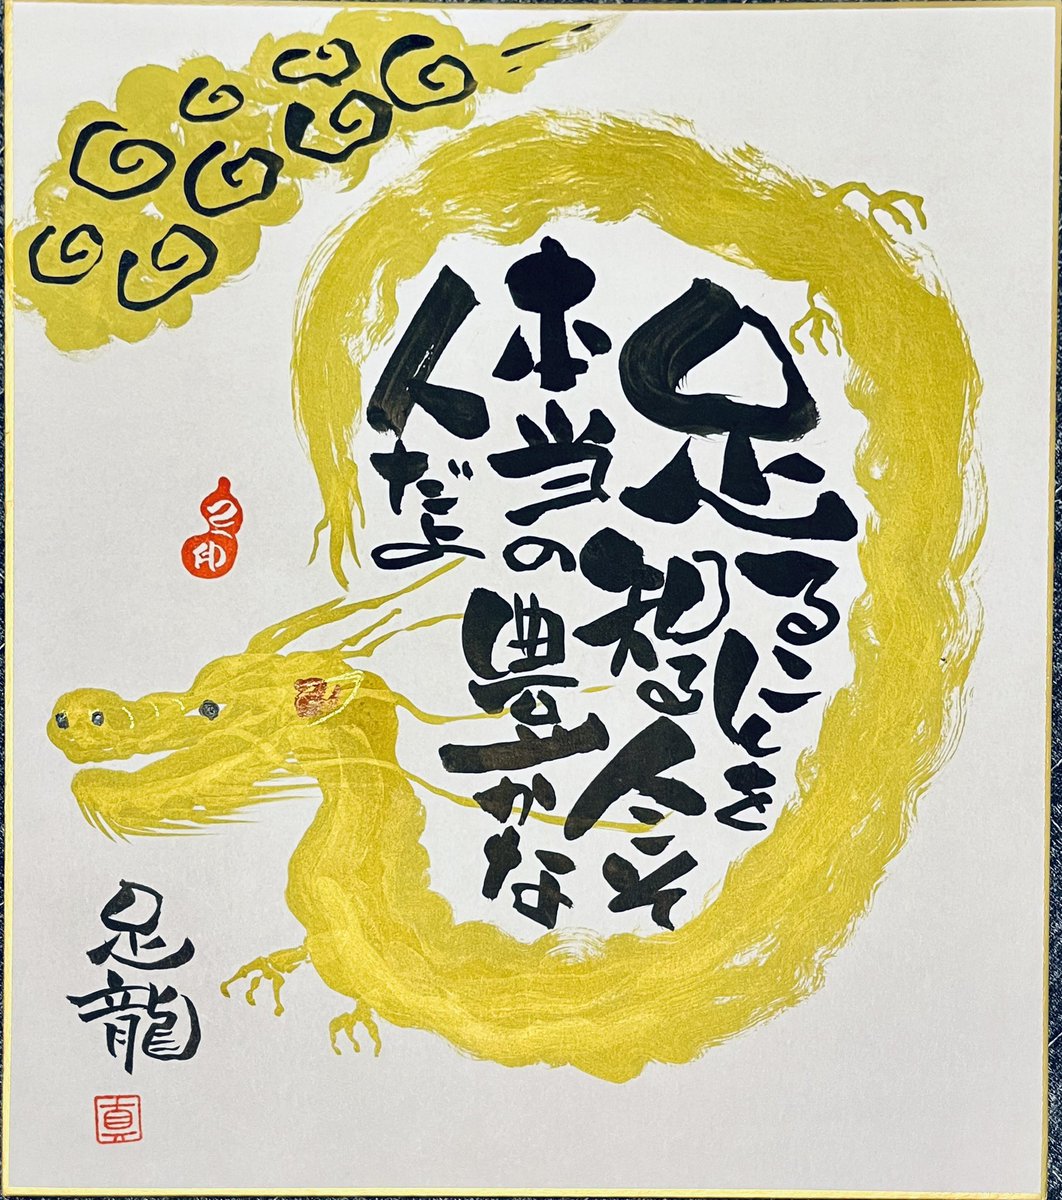 足ることを
知る人こそ
本当の豊かな
人だよ
足龍